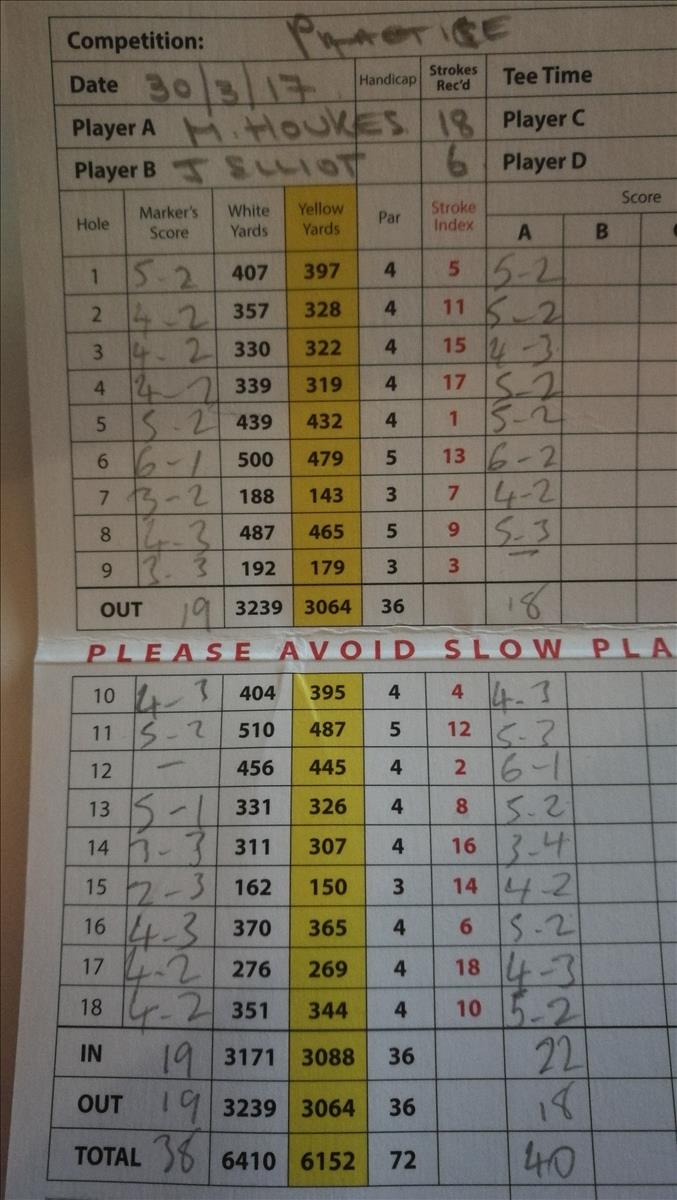 Competition: PRACTICE
Date 30/3/17 Handicap Strokes Rec'd Tee Time
Player A M. HOUKES 18 Player C
Player B J ELLIOT 6 Player D
Hole Marker's Score White Yards Yellow Yards Par Stroke Index Score
A B
1 5-2 407 397 4 5 5-2
2 4-2 357 328 4 11 5-2
3 4-2 330 322 4 15 4-3
4 4-2 339 319 4 17 5-2
5 5-2 439 432 4 1 5-2
6 6-1 500 479 5 13 6-2
7 3-2 188 143 3 7 4-2
8 4-3 487 465 5 9 5-3
9 3-3 192 179 3 3 —
OUT 19 3239 3064 36 18
PLEASE AVOID SLOW PLA
10 4-3 404 395 4 4 4-3
11 5-2 510 487 5 12 5-3
12 — 456 445 4 2 6-1
13 5-1 331 326 4 8 5-2
14 3-3 311 307 4 16 3-4
15 2-3 162 150 3 14 4-2
16 4-3 370 365 4 6 5-2
17 4-2 276 269 4 18 4-3
18 4-2 351 344 4 10 5-2
IN 19 3171 3088 36 22
OUT 19 3239 3064 36 18
TOTAL 38 6410 6152 72 40